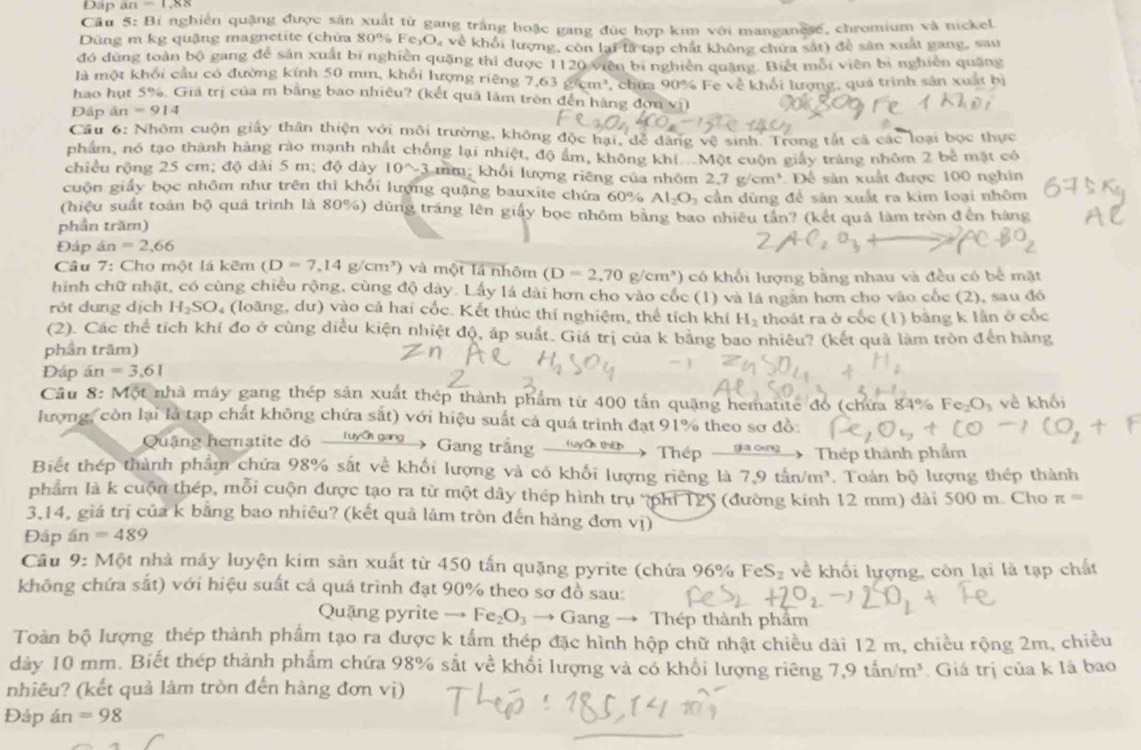 Đáp án = 1,88
Câu 5: Bi nghiền quặng được sản xuất từ gang trắng hoặc gang đúc hợp kim với manganese, chromium và nickel.
Dùng m kg quặng magnetite (chứa 80% Fe₃O₄ về khối lượng, còn lại là tạp chất không chứa sắt) để sản xuất gang, sau
đó dùng toàn bộ gang để sản xuất bi nghiền quặng thì được 1120 viên bi nghiền quặng. Biết mỗi viên bi nghiền quặng
là một khối cầu có đường kính 50 mm, khối lượng riêng 7,63 g/cm³, chứa 90% Fe về khối lượng, quá trình sản xuất bị
hao hụt 5%. Giá trị của m bằng bao nhiêu? (kết quả làm tròn đến hàng đơn vị)
Đáp án = 914
Câu 6: Nhôm cuộn giấy thân thiện với môi trường, không độc hại, dễ dàng vệ sinh. Trong tất cả các loại bọc thực
phẩm, nó tạo thành hàng rào mạnh nhất chống lại nhiệt, độ ẩm, không khí...Một cuộn giấy tráng nhôm 2 bề mặt có
chiều rộng 25 cm; độ dài 5 m; độ dày 10^-3 mm; khối lượng riêng của nhôm 2,7 g/cm³. Để sản xuất được 100 nghìn
cuộn giấy bọc nhôm như trên thì khối lượng quặng bauxite chứa 60% Al₂O₃ cần dùng để sản xuất ra kim loại nhôm
675 Kg
(hiệu suất toàn bộ quá trình là 80%) dùng tráng lên giấy bọc nhôm bằng bao nhiêu tấn? (kết quả làm tròn đến hàng
phần trăm)
Đáp án = 2,66
Câu 7: Cho một lá kẽm (D = 7,14 g/cm³) và một lá nhôm (D = 2,70 g/cm³) có khối lượng bằng nhau và đều có bề mặt
hình chữ nhật, có cùng chiều rộng, cùng độ dày. Lấy lá dài hơn cho vào cốc (1) và lá ngắn hơn cho vào cốc (2), sau đó
rót dung dịch H₂SO₄ (loãng, dư) vào cả hai cốc. Kết thúc thí nghiệm, thể tích khí H₂ thoát ra ở cốc (1) bằng k lần ở cốc
(2). Các thể tích khí đo ở cùng điều kiện nhiệt độ, áp suất. Giá trị của k bằng bao nhiêu? (kết quả làm tròn đến hàng
phần trăm)
Đáp án = 3,61
Câu 8: Một nhà máy gang thép sản xuất thép thành phẩm từ 400 tấn quặng hematite đỏ (chứa 84% Fe₂O₃ về khối
lượng, còn lại là tạp chất không chứa sắt) với hiệu suất cả quá trình đạt 91% theo sơ đồ:
Quặng hematite đỏ luyện gang → Gang trắng luyện thép → Thép gia công → Thép thành phẩm
Biết thép thành phẩm chứa 98% sắt về khối lượng và có khối lượng riêng là 7,9 tấn/m³. Toàn bộ lượng thép thành
phẩm là k cuộn thép, mỗi cuộn được tạo ra từ một dây thép hình trụ "phi 12" (đường kính 12 mm) dài 500 m. Cho π =
3,14, giá trị của k bằng bao nhiêu? (kết quả làm tròn đến hàng đơn vị)
Đáp án = 489
Câu 9: Một nhà máy luyện kim sản xuất từ 450 tấn quặng pyrite (chứa 96% FeS₂ về khối lượng, còn lại là tạp chất
không chứa sắt) với hiệu suất cả quá trình đạt 90% theo sơ đồ sau:
Quặng pyrite → Fe₂O₃ → Gang → Thép thành phẩm
Toàn bộ lượng thép thành phẩm tạo ra được k tấm thép đặc hình hộp chữ nhật chiều dài 12 m, chiều rộng 2m, chiều
dày 10 mm. Biết thép thành phẩm chứa 98% sắt về khối lượng và có khối lượng riêng 7,9 tấn/m³. Giá trị của k là bao
nhiêu? (kết quả làm tròn đến hàng đơn vị)
Đáp án = 98